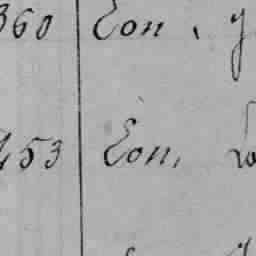 360 Eon, y
453 Éon,